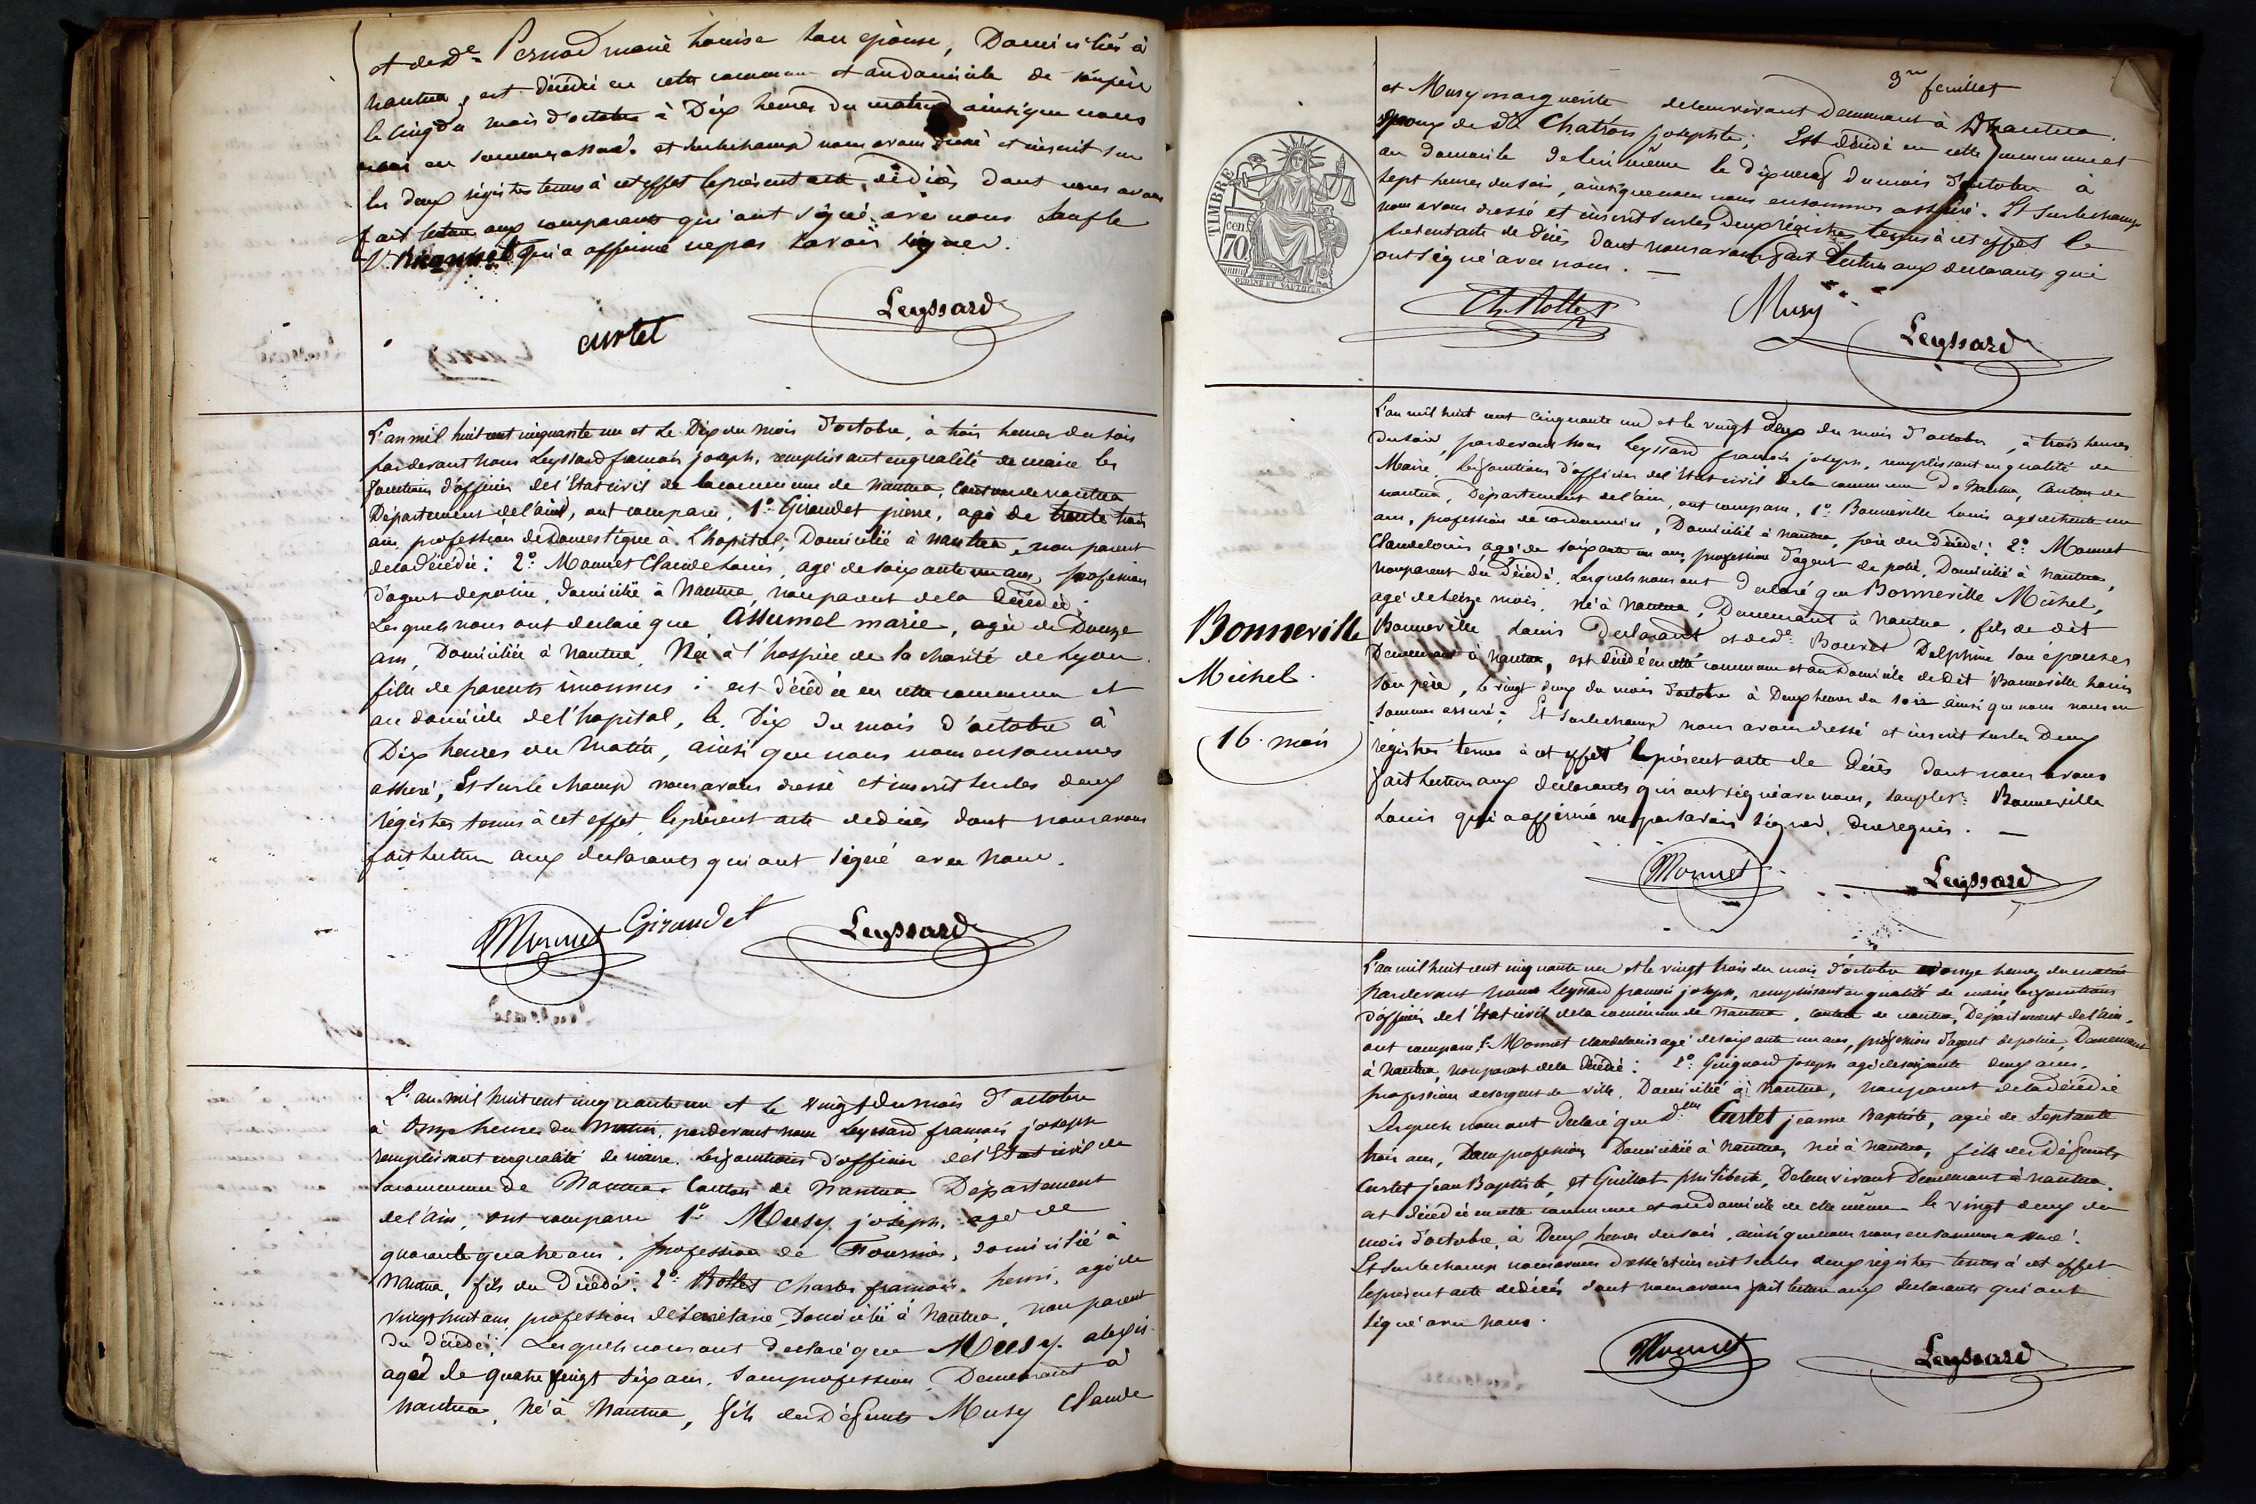 et de De Pernod marie Louise son épouse, Domiciliés à
nantua, est décédé en cette commune et au domicile de son père
le cinq du mois d'octobre à Dix heures du matin ainsi que nous
nous en sommes assuré. et sur le champ nous avons dressé et inscrit sur
les deux régistres tenus à cet effet le présent acte de décès dont nous avons
fait lecture aux comparants qui ont signé avec nous sauf le
qui a affirmé ne pas savoir signer.
Leyssard
curtet
L'an mil huit cent cinquante un et le Dix du mois d'octobre, à trois heures du soir
pardevant nous Leyssard françois joseph, remplissant en qualité de maire les
fonctions d'officier de l'Etat civil de la commune de nantua, canton de nantua
Département de l'ain, ont comparu, 1o Giraudet pierre, agé de trente trois
ans, profession de domestique à l'hopital, Domicilié à nantua, non parent
de la décédée: 2o Monnet Claude Louis, agé de soixante un ans, profession
d'agent de police, domicilié à nantua, non parent de la décédée.
Lesquels nous ont declaré que Assumel marie, agée de Douze
ans, Domiciliée à nantua, Née à l'hospice de la charité de Lyon.
fille de parents inconnus: est décédée en cette commune et
au domicile de l'hopital, le Dix du mois d'octobre à
Dix heures du matin, ainsi que nous nous en sommes
assuré, Et sur le champ nous avons dressé et inscrit sur les deux
régistres tenus à cet effet le présent acte de décès dont nous avons
fait lecture aux declarants qui ont signé avec nous.
Monnet Giraudet Leyssard
L'an mil huit cent cinquante un et le vingt du mois d'octobre
à onze heures du matin, pardevant nous Leyssard françois joseph
remplissant en qualité de maire les fonctions d'officier de l'Etat civil de
la commune de Nantua, Canton de nantua Département
de l'ain, ont comparu 1o Musy joseph, agé de
quarante quatre ans, profession de Fournier, domicilié à
nantua, fils du Décédé: 2o Nollet Charles françois henri, agé de
vingt huit ans, profession de Secrétaire, Domicilié à nantua, non parent
du décédé: Lesquels nous ont declaré que Musy alexis
agé de quatre vingt six ans, sans profession, Demeurant à
nantua, Né à Nantua, fils des Défunts Musy Claude
3me feuillet
et Musy marguerite de leur vivant demeurant à Nantua.
époux de De Chatron josephte; Est décédé en cette commune et
au domicile de lui même le dix neuf du mois d'octobre à
sept heures du soir, ainsi que nous nous en sommes assuré. Et sur le champ
nous avons dressé et inscrit sur les deux régistres tenus à cet effet le
présent acte de décès dont nous avons fait lecture aux declarants qui
ont signé avec nous.
TIMBRE
cen
70
Ch. Nollet Musy
Leyssard
L'an mil huit cent cinquante un et le vingt deux du mois d'octobre, à trois heures
du soir, pardevant nous Leyssard françois joseph, remplissant en qualité de
Maire, les fonctions d'officier de l'Etat civil de la commune de Nantua, Canton de
nantua, Département de l'ain, ont comparu, 1o Bonneville Louis agé de trente un
ans, profession de cordonnier, Domicilié à nantua, père du décédé: 2o Monnet
Claude Louis agé de soixante un ans, profession d'agent de police, Domicilié à nantua,
non parent du Décédé. Lesquels nous ont declaré que Bonneville Michel,
agé de seize mois, né à nantua, Demeurant à nantua, fils de dit
Bonneville Louis Declarant et de De Bouvet Delphine son epouse
Demeurant à nantua, est décédé en cette commune et au Domicile de dit Bonneville Louis
son père, le vingt deux du mois d'octobre à Deux heures du soir ainsi que nous nous en
sommes assuré; Et sur le champ nous avons dressé et inscrit sur les deux
régistres tenus à cet effet le présent acte de décès dont nous avons
fait lecture aux declarants qui ont signé avec nous, sauf le Sr. Bonneville
Louis qui a affirmé ne pas savoir signer, de ce requis.
Bonneville
Michel.
16 mois
Monnet Leyssard
L'an mil huit cent cinquante un et le vingt trois du mois d'octobre à onze heures du matin
pardevant nous Leyssard françois joseph, remplissant en qualité de maire les fonctions
d'officier de l'Etat civil de la commune de Nantua, canton de nantua, Département de l'ain,
ont comparu, 1o Monnet claude louis agé de soixante un ans, profession d'agent de police, Demeurant
à nantua, non parent de la décédée: 2o Guignard joseph agé de soixante deux ans,
profession de sergent de ville, Domicilié à nantua, non parent de la décédée
Lesquels nous ont declaré que Dlle Curtet jeanne Baptiste, agée de septante
trois ans, sans profession, Domiciliée à nantua, née à nantua, fille des Défunts
Curtet jean Baptiste, et Guillot philiberte, De leur vivant Demeurant à nantua.
est décédée en cette commune et au domicile de elle même le vingt deux du
mois d'octobre, à Deux heures du soir, ainsi que nous nous en sommes assuré.
Et sur le champ nous avons dressé et inscrit sur les deux régistres tenus à cet effet
le présent acte de décès dont nous avons fait lecture aux declarants qui ont
signé avec nous.
Monnet Leyssard